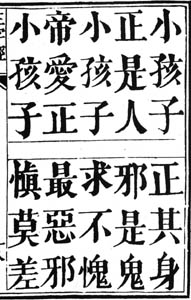 小孩子 正其身
正是人 邪是鬼
小孩子 求不愧
帝愛正 最惡邪
小孩子 慎莫差